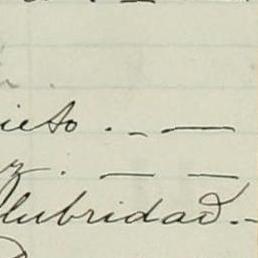 ieto . - —
z . — —
lubridad. -